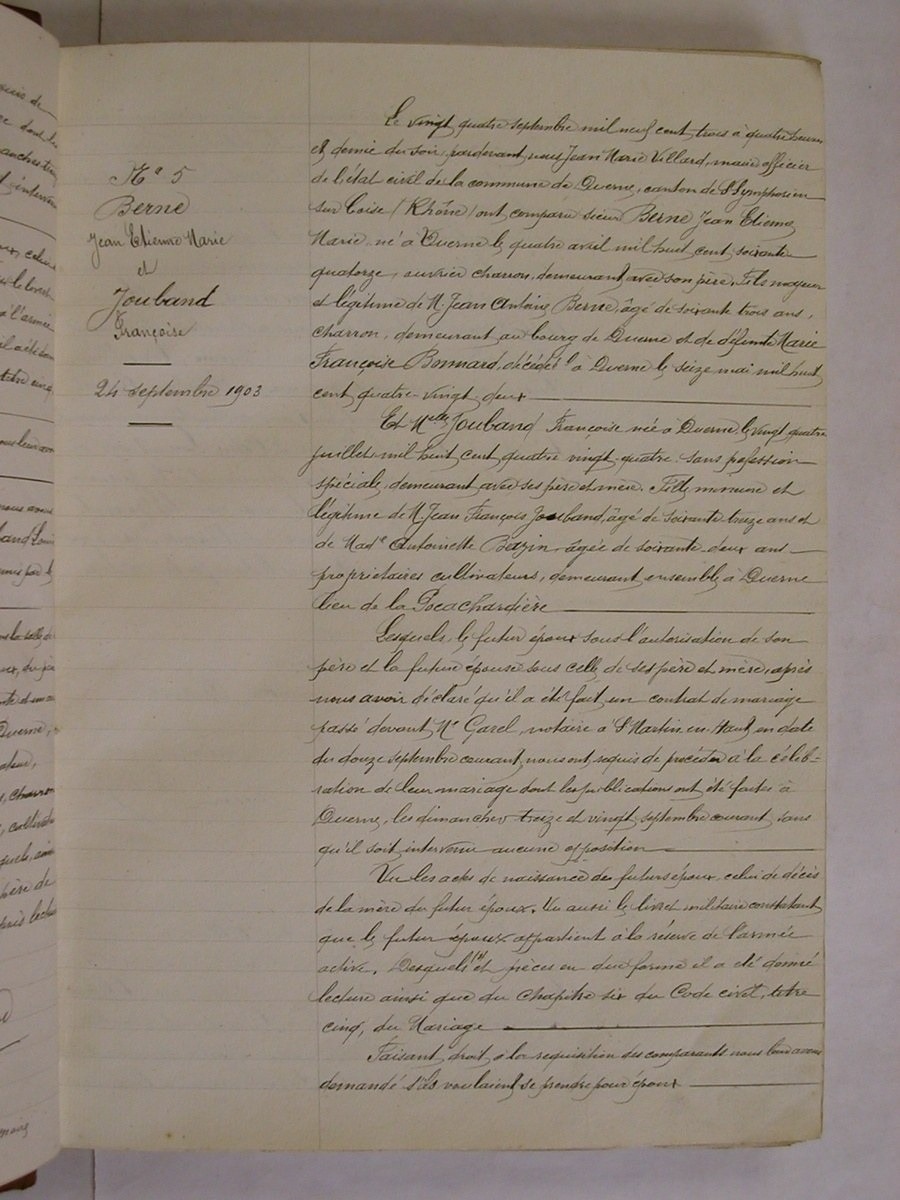 N° 5
Berne
Jean Etienne Marie
et
Jouband
Françoise
24 septembre 1903
Le vingt quatre septembre mil neuf cent trois à quatre heures
et demie du soir, pardevant nous Jean Marie Villard, maire officier
de l'état civil de la commune de Duerne, canton de St Symphorien
sur Coise (Rhône) ont comparu sieur Berne Jean Etienne
Marie né à Duerne le quatre avril mil huit cent soixante
quatorze, ouvrier charron, demeurant avec son père, Fils majeur
et légitime de M. Jean Antoine Berne, âgé de soixante trois ans,
charron, demeurant au bourg de Duerne et de défunte Marie
Françoise Bonnard, décédée à Duerne le seize mai mil huit
cent quatre-vingt deux
Et Melle Jouband Françoise née à Duerne le vingt quatre
juillet mil huit cent quatre vingt quatre sans profession
spéciale, demeurant avec ses père et mère. Fille mineure et
légitime de M. Jean François Jouband, âgé de soixante treize ans et
de Made Antoinette Bazin, âgée de soixante deux ans
propriétaires cultivateurs, demeurant ensemble à Duerne
lieu de la Pocachardière
Lesquels, le futur époux sous l'autorisation de son
père et la future épouse sous celle de ses père et mère, après
nous avoir déclaré qu'il a été fait un contrat de mariage
passé devant Me Garel, notaire à St Martin-en-Haut, en date
du douze septembre courant, nous ont requis de procéder à la céléb-
ration de leur mariage dont les publications ont été faites à
Duerne, les dimanches treize et vingt septembre courant, sans
qu'il soit intervenu aucune opposition
Vu les actes de naissance des futurs époux, celui de décès
de la mère du futur époux. Vu aussi le livret militaire constatant
que le futur époux appartient à la réserve de l'armée
active. Desquels et pièces en due forme il a été donné
lecture ainsi que du chapitre six du Code civil, titre
cinq, du Mariage
Faisant droit à la requisition des comparants nous leur avons
demandé s'ils voulaient se prendre pour époux